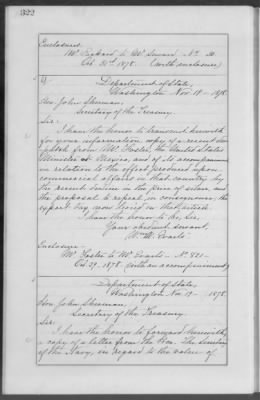 322
Enclosure.
Mr. Packard to Mr. Seward No. 20.
Oct. 25th 1878. (with enclosure)
Department of State,
Washington Nov 19 1878.
Hon. John Sherman,
Secretary of the Treasury.
Sir:
I have the honor to transmit herewith
for your information, copy of a recent des-
patch from Mr. Foster, the United States
Minister at Mexico, and of its accompaniment
in relation to the effect produced upon
commercial affairs in that country by
the recent decline in the price of silver, and
the proposal to repeal, in consequence, the
export tax now levied on that article.
I have the honor to be, Sir,
Your obedient servant,
Wm. M. Evarts.
Enclosure.
Mr. Foster to Mr. Evarts. No. 821
Oct 29, 1878 (with an accompaniment)
Department of State,
Washington Nov. 19 1878.
Hon. John Sherman,
Secretary of the Treasury.
Sir:
I have the honor to forward herewith,
a copy of a letter from the Hon. The Secretary
of the Navy, in regard to the value of